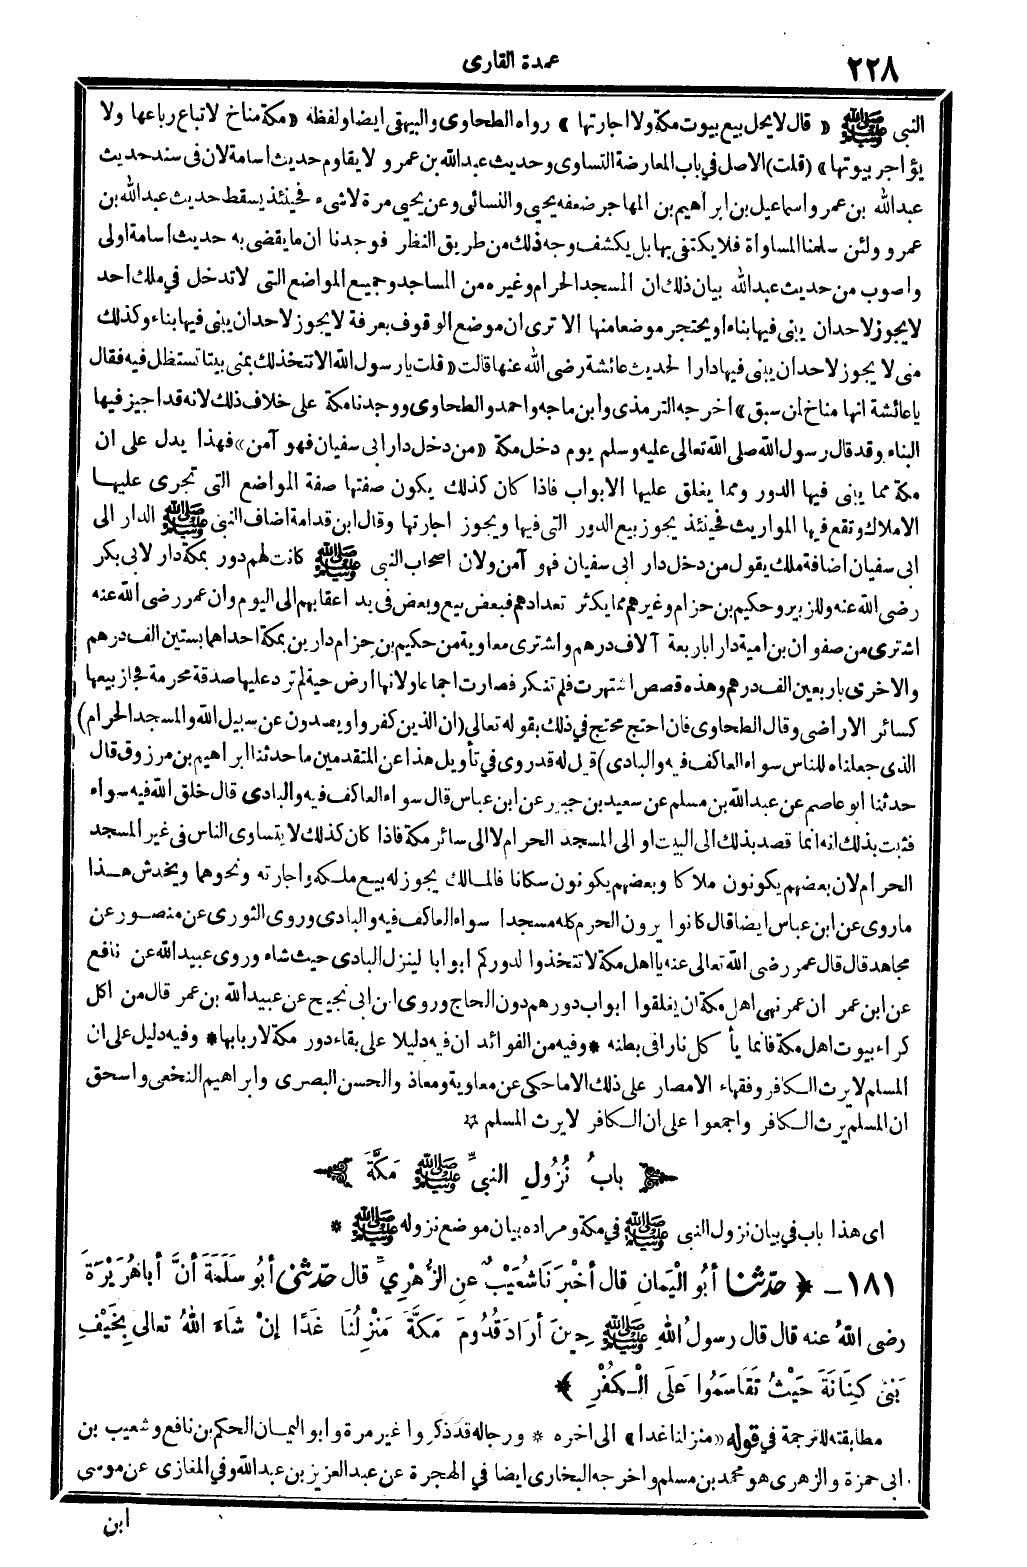 ٢٢٨
عمدة القارى
النبى ﷺ «قال لايحل بيع بيوت مكة ولا اجارتها» رواه الطحاوى والبيهقى ايضا ولفظه «مكة مناخ لاتباع رباعها ولا
يؤاجر بيوتها» (قلت) الاصل فى باب المعارضة التساوى وحديث عبدالله بن عمرو لا يقاوم حديث اسامة لان فى سند حديث
عبدالله بن عمرو اسماعيل بن ابراهيم بن المهاجر ضعفه يحيى والنسائى وعن يحيى مرة لاشىء فحينئذ يسقط حديث عبدالله بن
عمرو ولئن سلمنا المساواة فلا يكتفى بها بل يكشف وجه ذلك من طريق النظر فوجدنا ان ما يقضى به حديث اسامة اولى
واصوب من حديث عبدالله بيان ذلك ان المسجد الحرام وغيره من المساجد وجميع المواضع التى لا تدخل فى ملك احد
لايجوز لاحد ان يبنى فيها بناء او يحتجر موضعا منها الا ترى ان موضع الوقوف بعرفة لا يجوز لاحد ان يبنى فيها بناء وكذلك
منى لا يجوز لاحد ان يبنى فيها دارا لحديث عائشة رضى الله عنها قالت «قلت يارسول الله الا تتخذ لك بمنى بيتا تستظل فيه فقال
ياعائشة انها مناخ لمن سبق» اخرجه الترمذى وابن ماجه واحمد والطحاوى ووجدنا مكة على خلاف ذلك لانه قد اجيز فيها
البناء وقد قال رسول الله صلى الله تعالى عليه وسلم يوم دخل مكة «من دخل دار ابى سفيان فهو آمن» فهذا يدل على ان
مكة مما يبنى فيها الدور ومما يغلق عليها الابواب فاذا كان كذلك يكون صفتها صفة المواضع التى تجرى عليها
الاملاك وتقع فيها المواريث فحينئذ يجوز بيع الدور التى فيها ويجوز اجارتها وقال ابن قدامة اضاف النبى ﷺ الدار الى
ابى سفيان اضافة ملك يقول من دخل دار ابى سفيان فهو آمن ولان اصحاب النبى ﷺ كانت لهم دور بمكة دار لابى بكر
رضى الله عنه وللزبير وحكيم بن حزام وغيرهم مما يكثر تعدادهم فبعض بيع وبعض فى يد اعقابهم الى اليوم وان عمر رضى الله عنه
اشترى من صفوان بن امية دارا باربعة آلاف درهم واشترى معاوية من حكيم بن حزام دارين بمكة احداهما بستين الف درهم
والاخرى باربعين الف درهم وهذه قصص اشتهرت فلم تنكر فصارت اجماعا ولانها ارض حية لم ترد عليها صدقة محرمة فجاز بيعها
كسائر الاراضى وقال الطحاوى فان احتج محتج فى ذلك بقوله تعالى (ان الذين كفروا ويصدون عن سبيل الله والمسجد الحرام)
الذى جعلناه للناس سواء العاكف فيه والبادى) قيل له قد روى فى تأويل هذا عن المتقدمين ما حدثنا ابراهيم بن مرزوق قال
حدثنا ابو عاصم عن عبدالله بن مسلم عن سعيد بن جبير عن ابن عباس قال سواء العاكف فيه والبادى قال خلق الله فيه سواء
فثبت بذلك انه انما قصد بذلك الى البيت او الى المسجد الحرام لا الى سائر مكة فاذا كان كذلك لا يتساوى الناس فى غير المسجد
الحرام لان بعضهم يكونون ملاكا وبعضهم يكونون سكانا فالمالك يجوز له بيع ملكه واجارته ونحوهما ويخدش هذا
ماروى عن ابن عباس ايضا قال كانوا يرون الحرم كله مسجدا سواء العاكف فيه والبادى وروى الثورى عن منصور عن
مجاهد قال قال عمر رضى الله تعالى عنه يا اهل مكة لا تتخذوا لدوركم ابوابا لينزل البادى حيث شاء وروى عبيدالله عن نافع
عن ابن عمر ان عمر نهى اهل مكة ان يغلقوا ابواب دورهم دون الحاج وروى ابن ابى نجيح عن عبيدالله بن عمر قال من اكل
كراء بيوت اهل مكة فانما يأكل نارا فى بطنه * وفيه من الفوائد ان فيه دليلا على بقاء دور مكة لاربابها * وفيه دليل على ان
المسلم لا يرث الكافر وفقهاء الامصار على ذلك الا ما حكى عن معاوية ومعاذ والحسن البصرى وابراهيم النخعى واسحق
ان المسلم يرث الكافر واجمعوا على ان الكافر لا يرث المسلم *
بابُ نُزُولِ النبىِّ ﷺ مَكَّةَ
اى هذا باب فى بيان نزول النبى ﷺ فى مكة ومراده بيان موضع نزوله ﷺ *
١٨١ - ﴿حدّثنا أبُو الْيَمانِ قال أخْبَرَنا شُعَيْبٌ عنِ الزُّهْرِيِّ قال حدّثنى أبُو سلَمَةَ أنَّ أباهُرَيْرَةَ
رضى اللهُ عنه قال قال رسولُ اللهِ ﷺ حِينَ أرَادَ قُدُومَ مَكَّةَ مَنْزِلُنَا غَدًا إنْ شاءَ اللهُ تعالى بِخَيْفِ
بَنِى كِنَانَةَ حَيْثُ تَقَاسَمُوا عَلَى الْكُفْرِ﴾
مطابقته للترجمة فى قوله «منزلنا غدا» الى آخره * ورجاله قد ذكروا غير مرة وابو اليمان الحكم بن نافع وشعيب بن
ابى حمزة والزهرى هو محمد بن مسلم واخرجه البخارى ايضا فى الهجرة عن عبد العزيز بن عبدالله وفى المغازى عن موسى
ابن